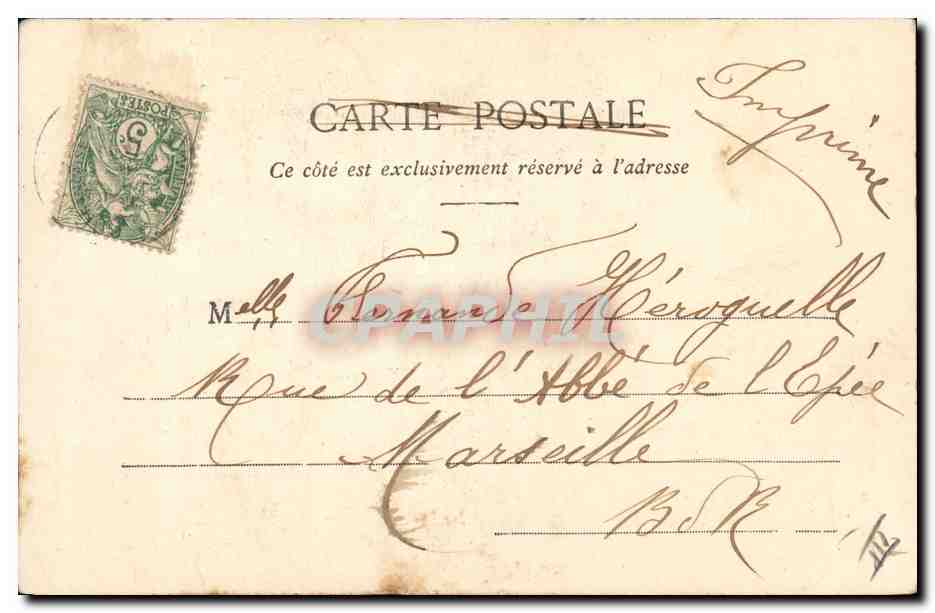 POSTES
5
Imprimé
CARTE POSTALE
Ce côté est exclusivement réservé à l'adresse
CPAPHIL
Melle Fernande Héroguelle
Rue de l'Abbé de l'Epée
Marseille
B d R